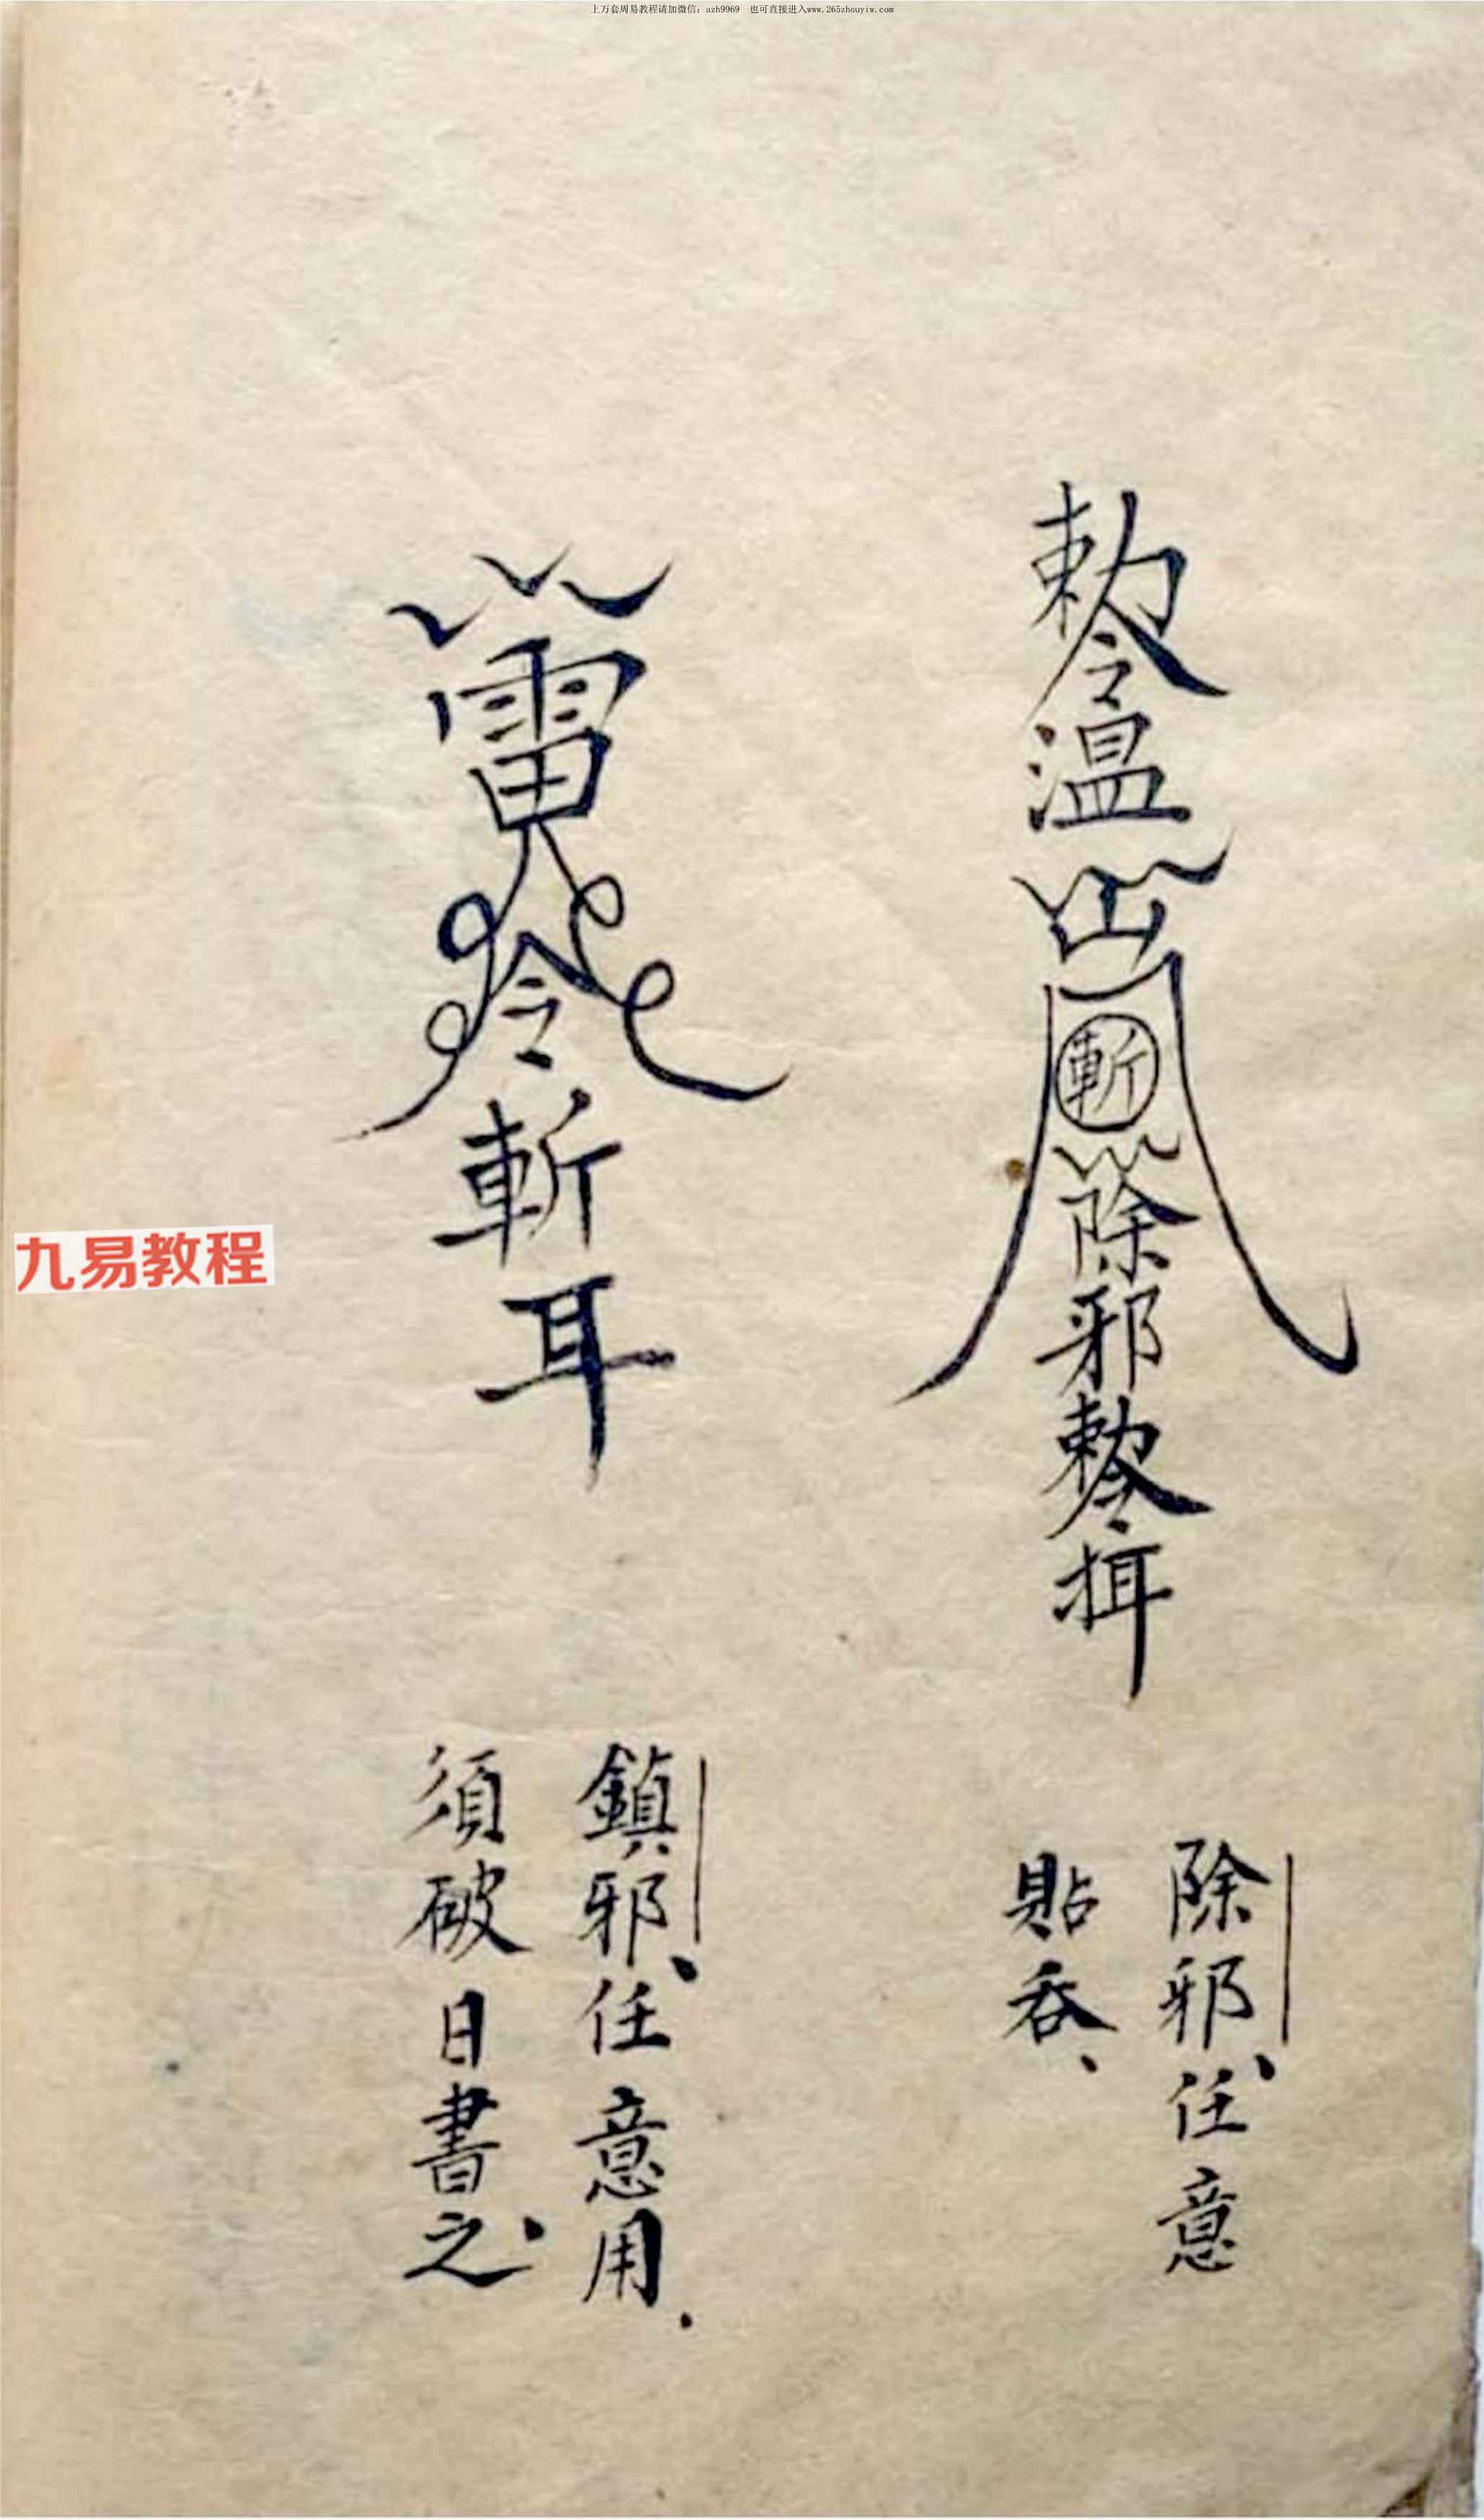 上万套周易教程请加微信：azh9969 也可直接进入www.265zhouyiw.com
勅令溫
斬
除邪勅令揖
除邪、任意
貼吞、
雷令斬耳
鎮邪、任意用.
須破日書之、
九易教程